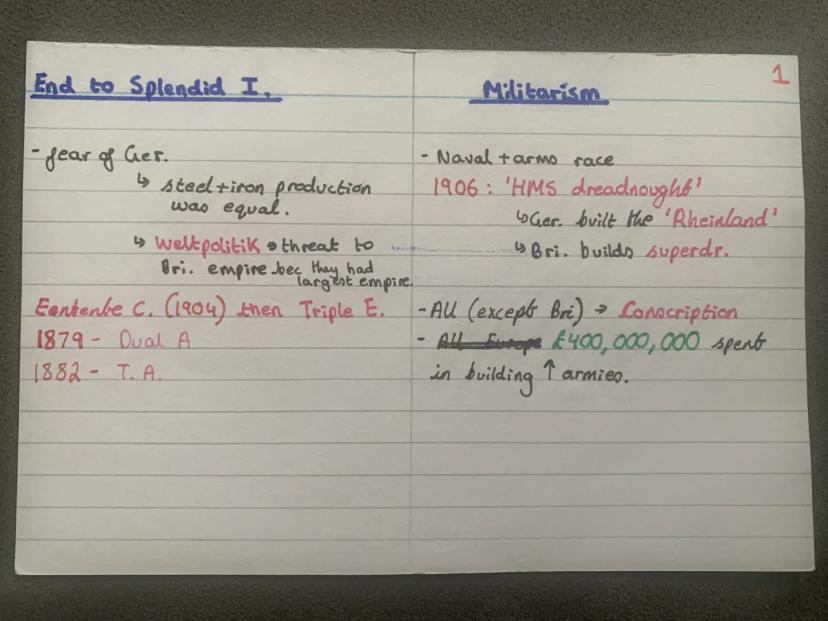 End to Splendid I.
- fear of Ger.
↳ steel + iron production
was equal.
↳ Weltpolitik → threat to
Bri. empire bec they had
largest empire.
Eentente C. (1904) then Triple E.
1879 - Dual A
1882 - T. A.
1
Militarism
- Naval + arms race
1906 : 'HMS dreadnought'
↳ Ger. built the 'Rheinland'
↳ Bri. builds superdr.
- All (except Bri) → Conscription
- All Europe £400,000,000 spent
in building ↑ armies.